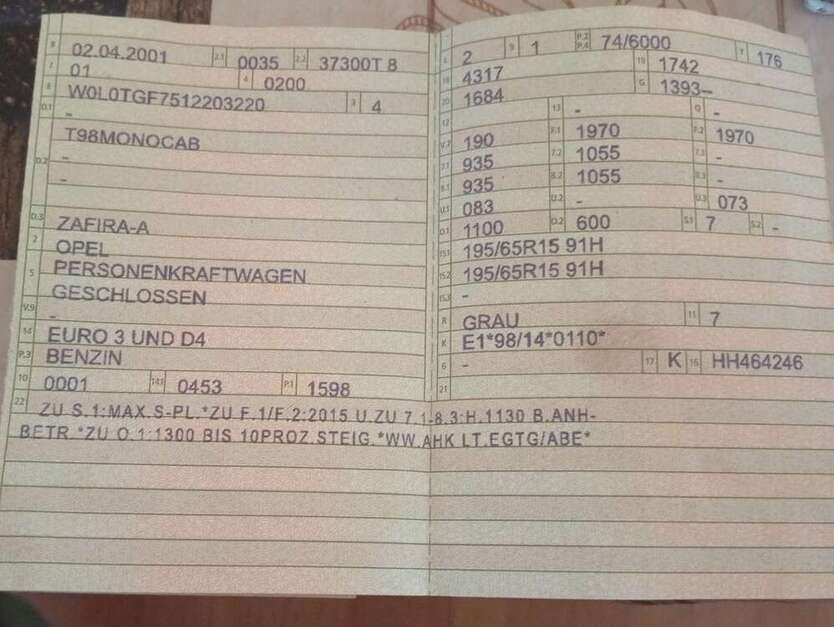 B 02.04.2001 2.1 0035 2.2 37300T 8
J 01 4 0200
E W0L0TGF7512203220 3 4
D.1 -
T98MONOCAB
D.2 -
-
D.3 ZAFIRA-A
2 OPEL
5 PERSONENKRAFTWAGEN
GESCHLOSSEN
V.9 -
14 EURO 3 UND D4
P.3 BENZIN
10 0001 14.1 0453 P.1 1598
L 2 9 1 P.2 P.4 74/6000 T 176
18 4317 19 1742
20 1684 G 1393--
12 - 13 - Q -
V.7 190 F.1 1970 F.2 1970
7.1 935 7.2 1055 7.3 -
8.1 935 8.2 1055 8.3 -
U.1 083 U.2 - U.3 073
O.1 1100 O.2 600 S.1 7 S.2 -
15.1 195/65R15 91H
15.2 195/65R15 91H
15.3 -
R GRAU 11 7
K E1*98/14*0110*
6 - 17 K 16 HH464246
21
22 ZU S.1:MAX.S-PL.*ZU F.1/F.2:2015 U.ZU 7.1-8.3:H.1130 B.ANH-
BETR.*ZU O.1:1300 BIS 10PROZ.STEIG.*WW.AHK LT.EGTG/ABE*